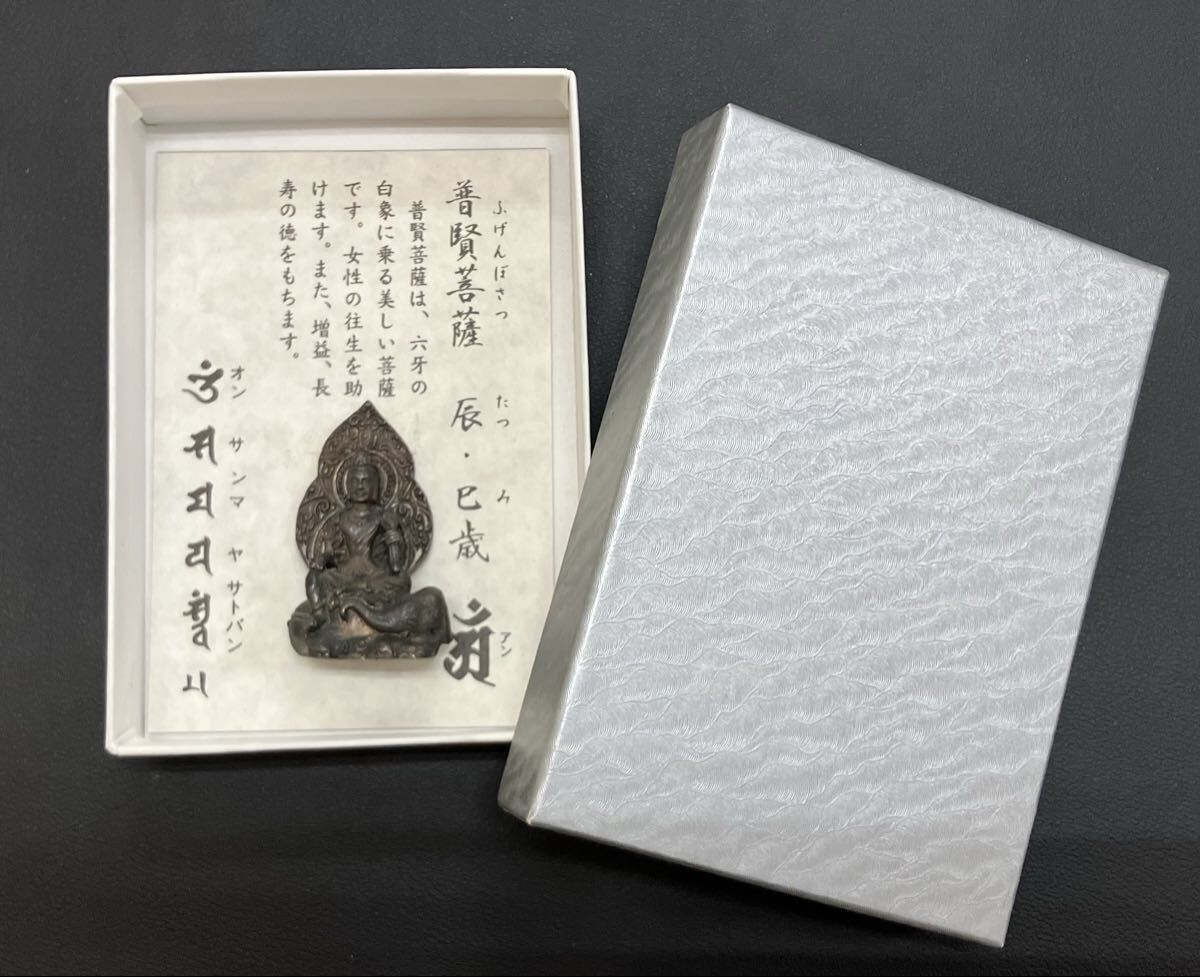 ふげんぼさつ たつ み
普賢菩薩 辰・巳歳
アン
普賢菩薩は、六牙の
白象に乗る美しい菩薩
です。女性の往生を助
けます。また、増益、長
寿の徳をもちます。
オン サンマ ヤ サトバン